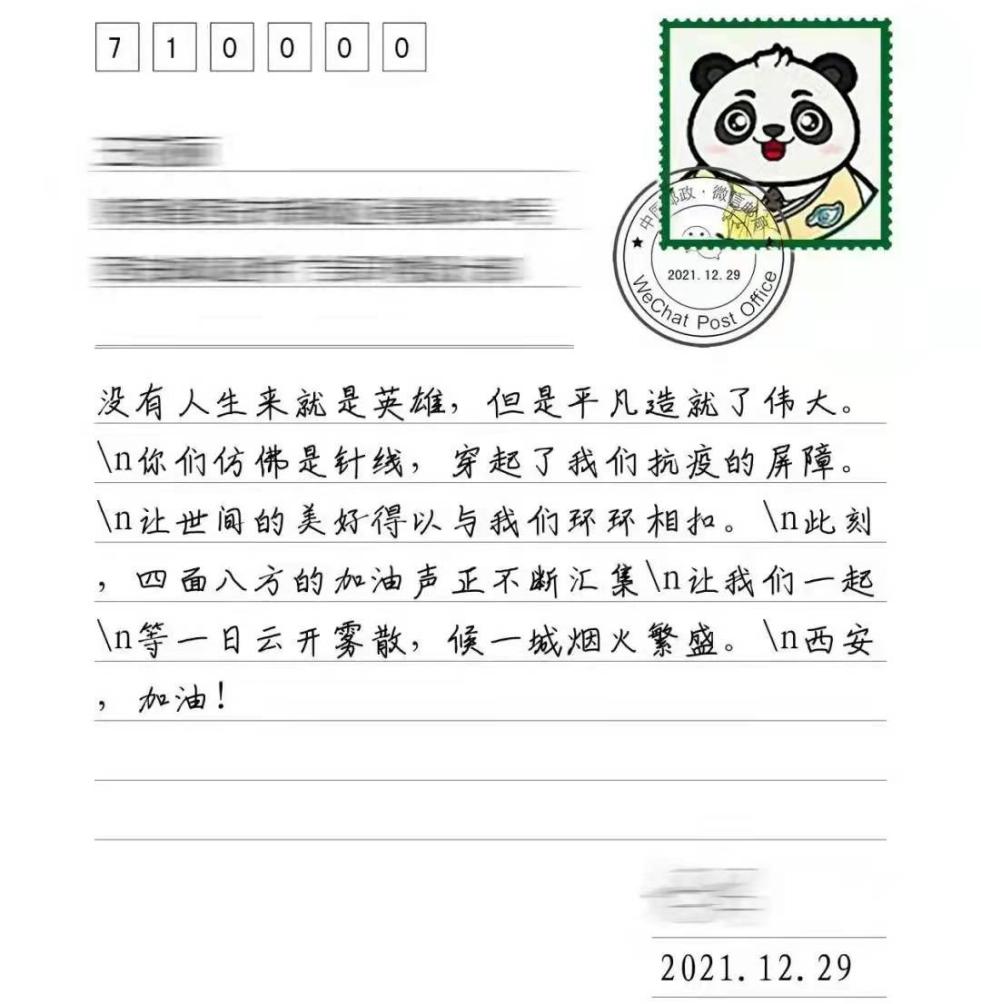 710000
中国邮政·微信邮局
2021.12.29
WeChat Post Office
没有人生来就是英雄，但是平凡造就了伟大。
\n你们仿佛是针线，穿起了我们抗疫的屏障。
\n让世间的美好得以与我们环环相扣。\n此刻
，四面八方的加油声正不断汇集\n让我们一起
\n等一日云开雾散，候一城烟火繁盛。\n西安
，加油！
2021.12.29